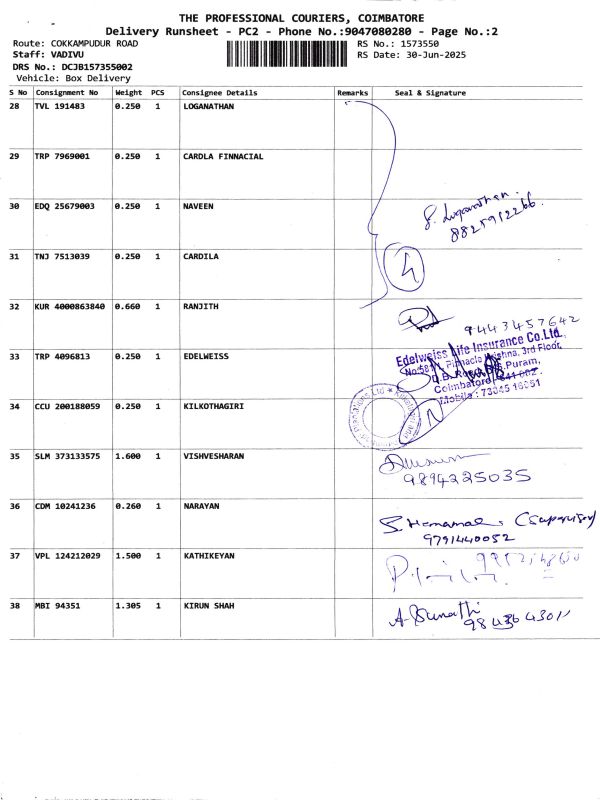 THE PROFESSIONAL COURIERS, COIMBATORE
Delivery Runsheet - PC2 - Phone No.:9047080280 - Page No.:2
Route: COKKAMPUDUR ROAD RS No.: 1573550
Staff: VADIVU RS Date: 30-Jun-2025
DRS No.: DCJB157355002
Vehicle: Box Delivery
S No Consignment No Weight PCS Consignee Details Remarks Seal & Signature
28 TVL 191483 0.250 1 LOGANATHAN
29 TRP 7969001 0.250 1 CARDLA FINNACIAL
30 EDQ 25679003 0.250 1 NAVEEN
8825912266
31 TNJ 7513039 0.250 1 CARDILA
4
32 KUR 4000863840 0.660 1 RANJITH
9443457642
33 TRP 4096813 0.250 1 EDELWEISS
Edelweiss Life Insurance Co.Ltd.,
Krishna, 3rd Floor,
Puram,
Coimbatore - 641 002.
Mobile : 73045 16051
34 CCU 200188059 0.250 1 KILKOTHAGIRI
35 SLM 373133575 1.600 1 VISHVESHARAN
9894225035
36 CDM 10241236 0.260 1 NARAYAN
(Supervisor)
9791440052
37 VPL 124212029 1.500 1 KATHIKEYAN
38 MBI 94351 1.305 1 KIRUN SHAH